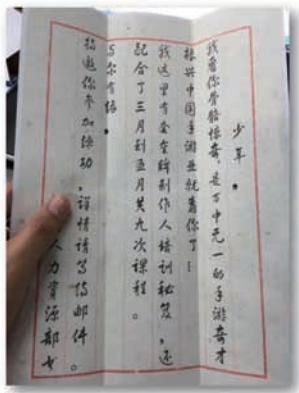 少年。
我看你骨骼惊奇，是万中无一的手游奇才
振兴中国手游业就靠你了！
我这里有全套制作人培训秘笈，还
配合了三月到五月共九次课程。
与你有缘。
特邀你参加练功，详情请写信邮件。
人力资源部